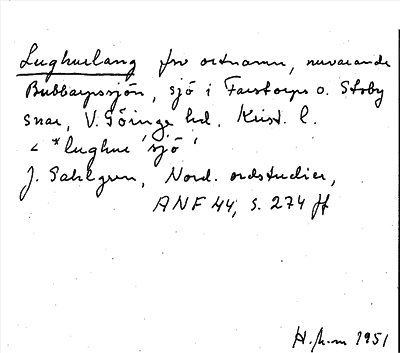 Lughurlang fsv ortnamn, nuvarande
Bubbarpssjön, sjö i Farstorps o. Stoby
snar, V. Göinge hd. Krist. l.
< *lughur 'sjö'
J. Sahlgren, Nord. ordstudier,
ANF 44, s. 274 ff
1951